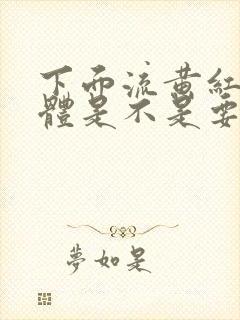 下面流黃紅
體是不是要
夢如是